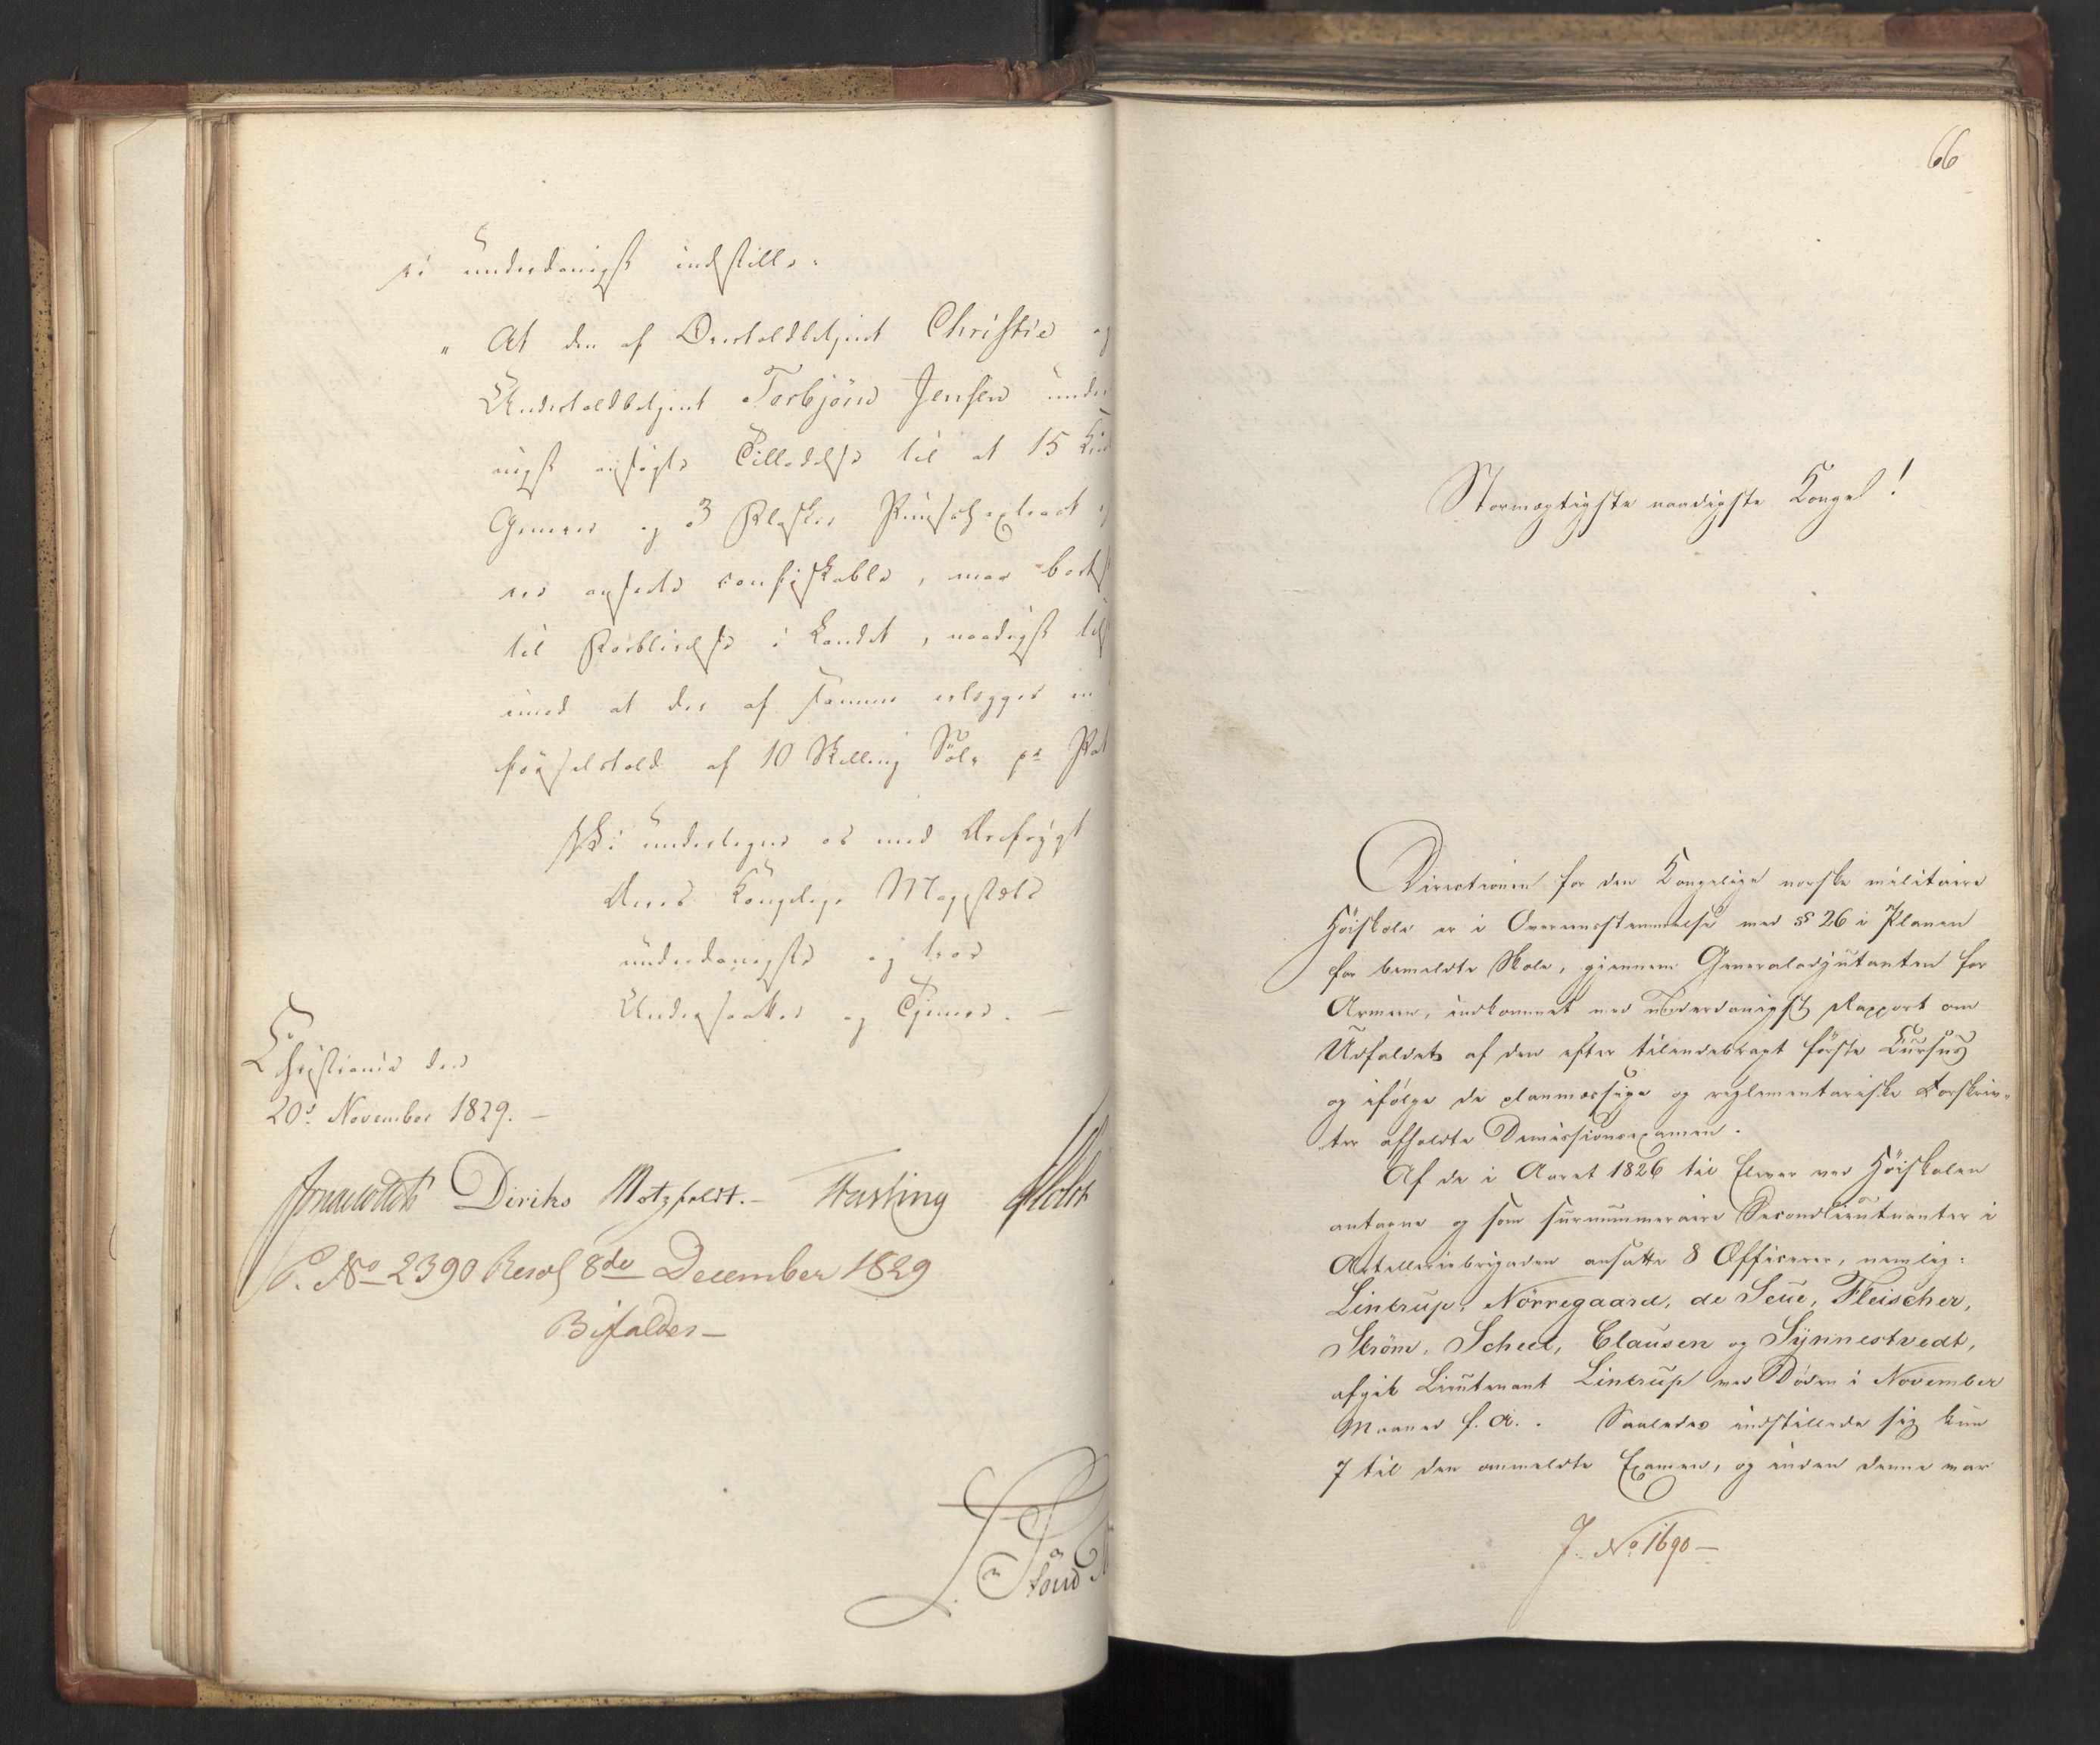 vi underdanigst indstille:
" At den af Overtoldbetjent Christie og
Undertoldbetjent Torbjörn Jensen under
nigst ansøgte Tilladelse til at 15
Genever og 3 Flasker Punschextract
ved ansete confiskable, maa
til Forblivelse i Landet, naadigst
imod at der af samme erlægges in
førselstold af 10 Skilling Sölv pr
Vi undertegne os med Ærefrygt
Deres Kongelige Majestæts
underdanigste og troe
Undersaatter og Tjenere. —
Christiania den
20de November 1829. —
Diriks Motzfeldt. — Fasting
P. No 2390 Resol 8de December 1829
Bifaldes —
66
Stormægtigste naadigste Konge!
Directionen for den Kongelige norske militaire
Höiskole er i Overeensstemmelse med § 26 i Planen
for bemeldte Skole, gjennem Generaladjutanten for
Armeen, indkommet med underdanigst Rapport om
Udfaldet af den efter tilendebragt förste Cursus
og ifölge de planmæssige og reglementariske Forskriv-
ter afholdte Demissionsexamen.
Af de i Aaret 1826 til Elever ved Höiskolen
antagne og som surnummeraire Secondlieutenanter i
Artilleriebrigaden ansatte 8 Officerer, nemlig:
Lintrup, Nörregaard, de Seue, Fleischer,
Ström, Scheel, Clausen og Synnestvedt,
afgik Lieutenant Lintrup ved Döden i November
Maaned f. A. . Saaledes indstillede sig kun
7 til den anmeldte Examen, og inden denne var
J. No 1690 —